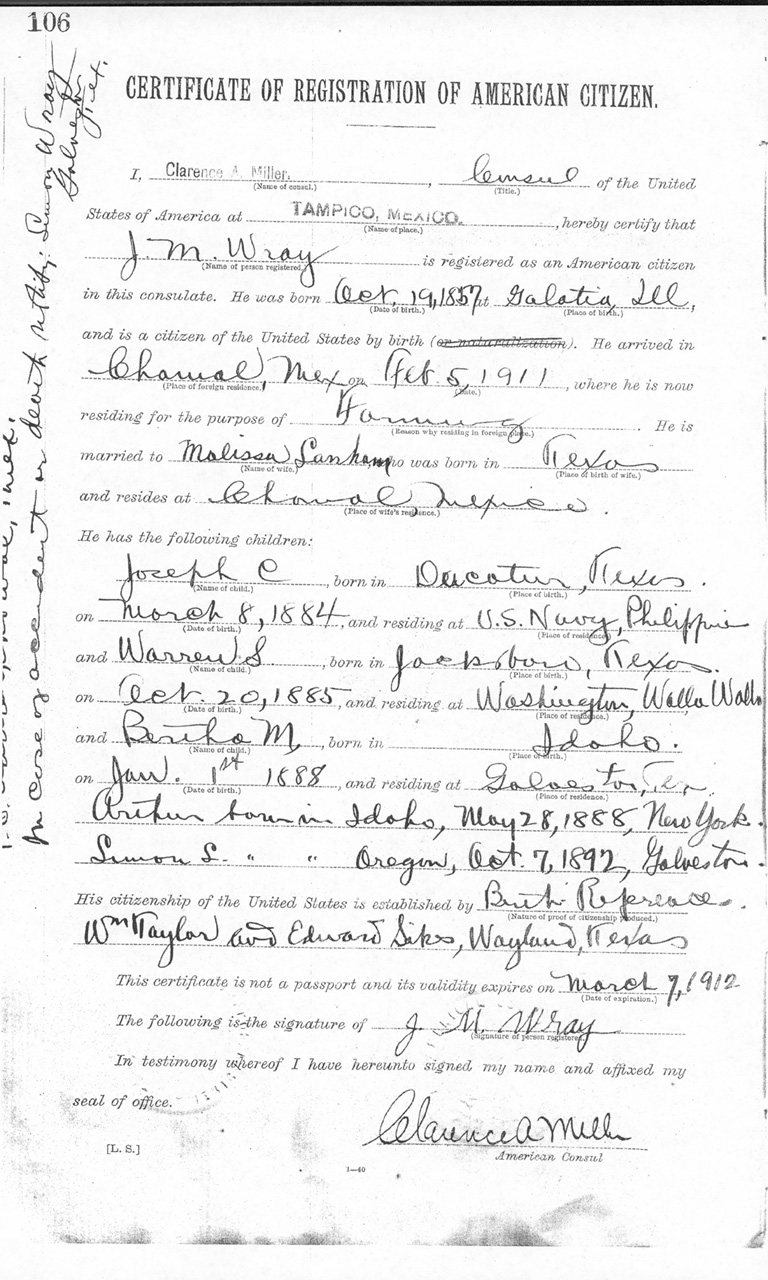 106
CERTIFICATE OF REGISTRATION OF AMERICAN CITIZEN.
I, Clarence A. Miller, Consul of the United
(Name of consul.) (Title.)
States of America at TAMPICO, MEXICO. , hereby certify that
(Name of place.)
J. M. Wray is registered as an American citizen
(Name of person registered.)
in this consulate. He was born Oct. 19, 1857 at Galatia, Ill,
(Date of birth.) (Place of birth.)
and is a citizen of the United States by birth (or naturalization). He arrived in
Chamal, Mex on Feb 5, 1911 , where he is now
(Place of foreign residence.) (Date.)
residing for the purpose of Farming . He is
(Reason why residing in foreign place.)
married to Malissa Lanham who was born in Texas
(Name of wife.) (Place of birth of wife.)
and resides at Chamal, Mexico .
(Place of wife's residence.)
He has the following children:
Joseph C , born in Decatur, Texas .
(Name of child.) (Place of birth.)
on March 8, 1884, and residing at U.S. Navy, Philippine
(Date of birth.) (Place of residence.)
and Warren S , born in Jacksboro, Texas.
(Name of child.) (Place of birth.)
on Oct. 20, 1885, and residing at Washington, Walla Walla
(Date of birth.) (Place of residence.)
and Bertha M , born in Idaho.
(Name of child.) (Place of birth.)
on Jan. 1st 1888 , and residing at Galveston, Tex.
(Date of birth.) (Place of residence.)
Arthur born in Idaho, May 28, 1888, New York.
Simon L. " " Oregon, Oct. 7, 1892, Galveston.
His citizenship of the United States is established by Birth Reference.
(Nature of proof of citizenship produced.)
Wm Taylor and Edward Sikes, Wayland, Texas
This certificate is not a passport and its validity expires on March 7, 1912
(Date of expiration.)
The following is the signature of J. M. Wray
(Signature of person registered.)
In testimony whereof I have hereunto signed my name and affixed my
seal of office.
Clarence A Miller
[L. S.] American Consul
1—40
In case of accident or death notify: Simon Wray
Galveston
Tex.